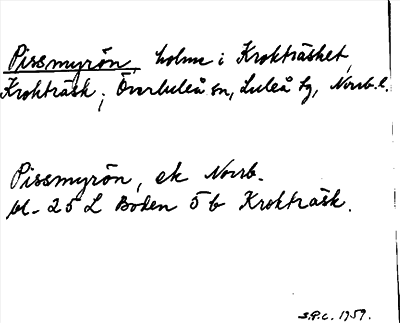 Pissmyrön, holme i Kroktträsket,
Kroktträsk, Överluleå sn, Luleå tg, Norrb. l.
Pissmyrön, ek Norrb.
bl. 25 L Boden 5 b Krokträsk.
S.P.C. 1959.